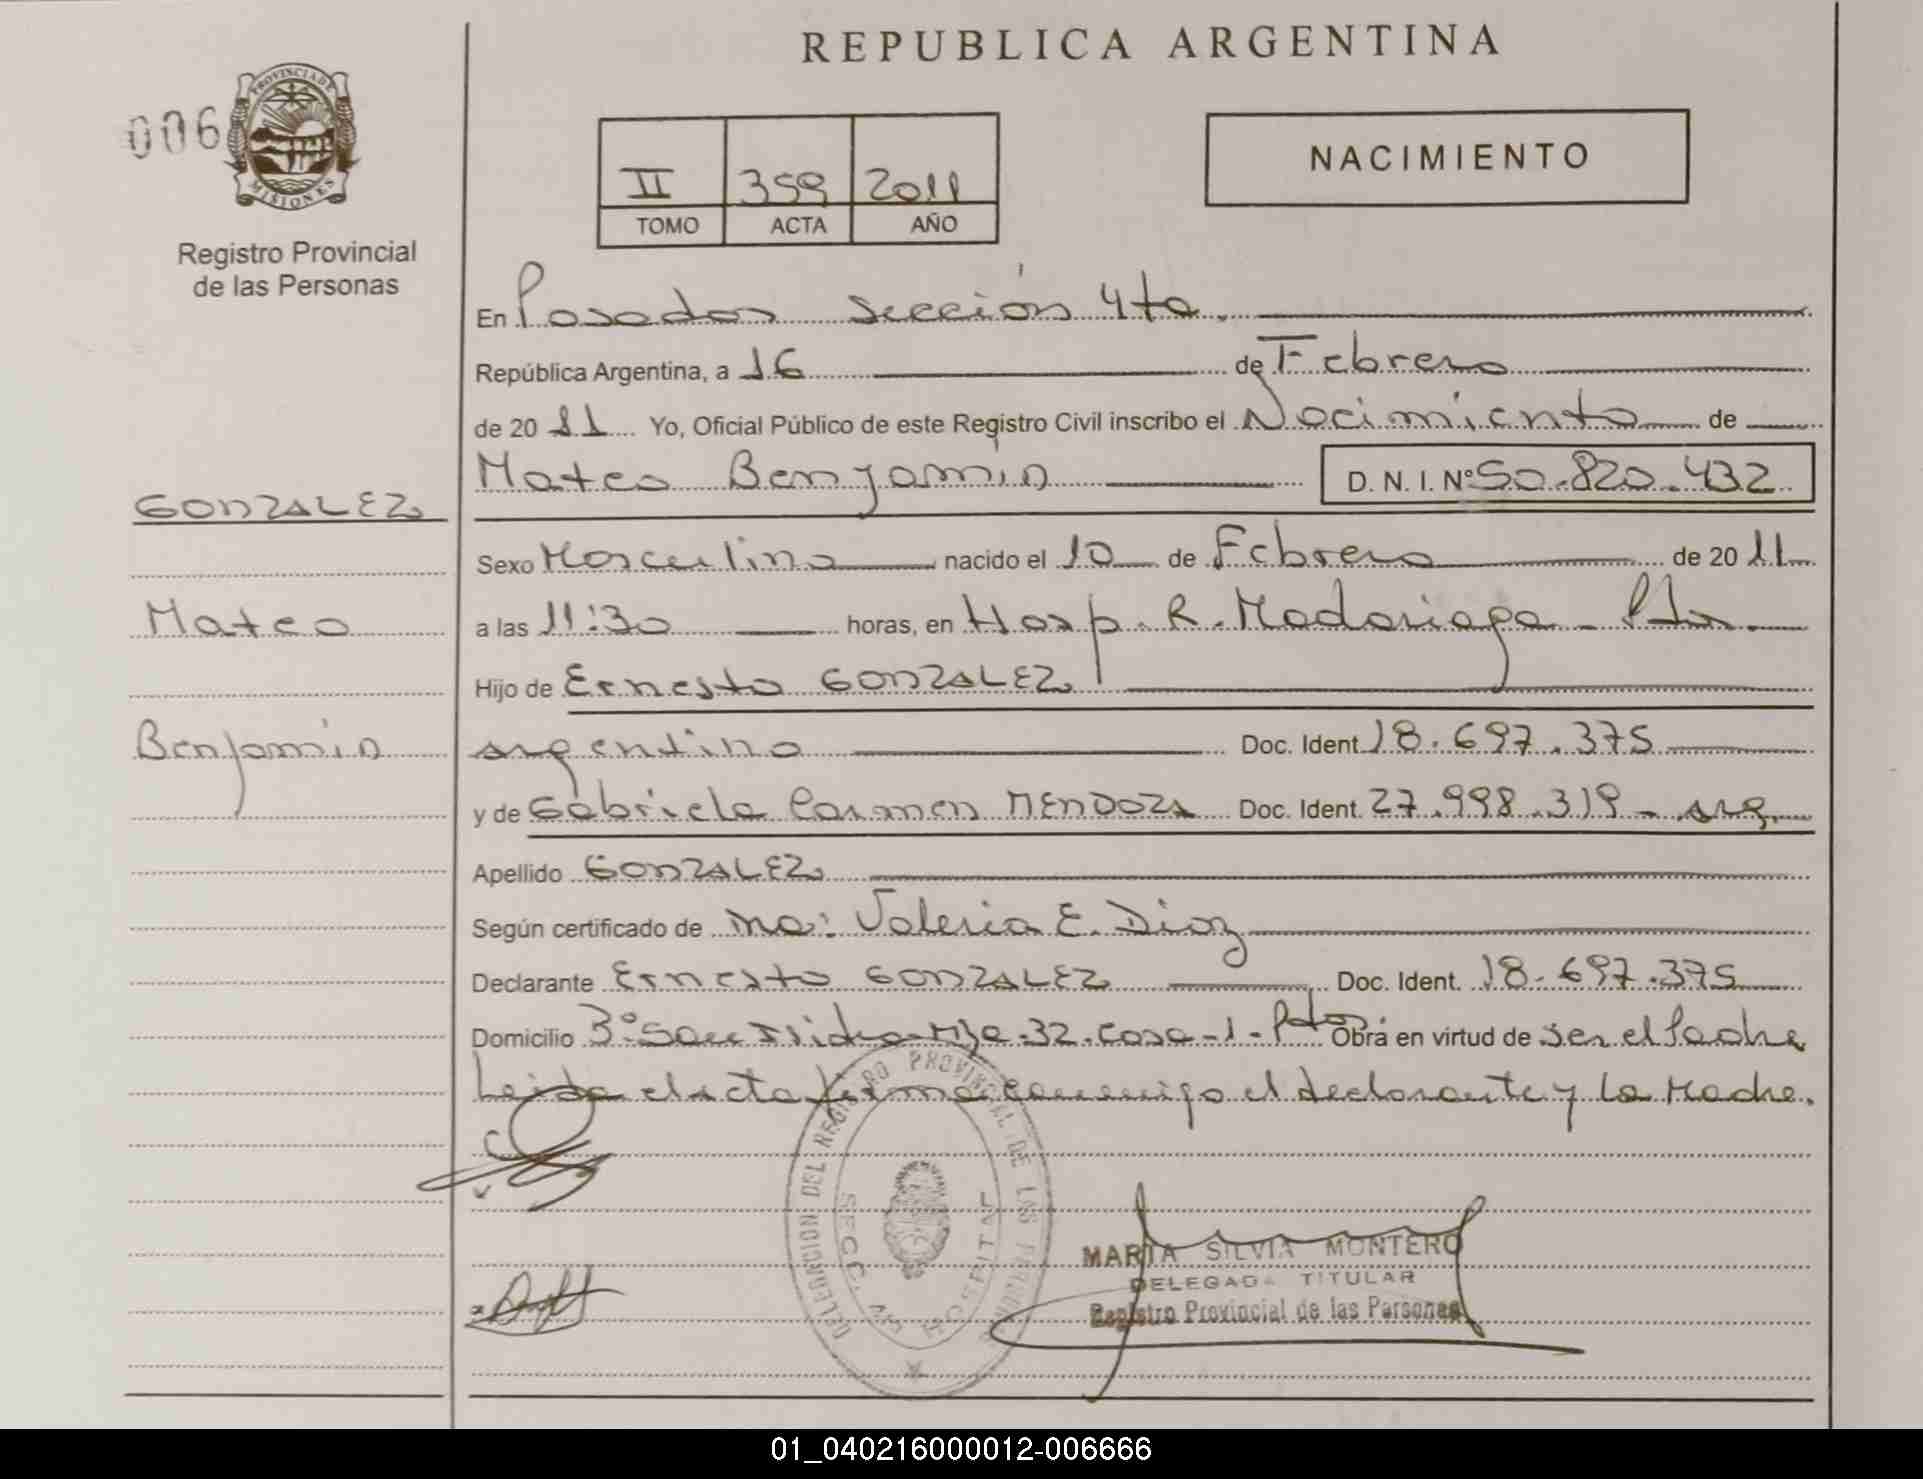 REPUBLICA ARGENTINA
006
PROVINCIA DE
MISIONES
Registro Provincial
de las Personas
II 359 2011
TOMO ACTA AÑO
NACIMIENTO
En Posadas Sección 4ta.
República Argentina, a 16 de Febrero
de 20 11 Yo, Oficial Público de este Registro Civil inscribo el Nacimiento de
Mateo Benjamin D. N. I. Nº 50.820.432
GONZALEZ
Mateo
Benjamin
Sexo Masculino nacido el 10 de Febrero de 20 11
a las 11:30 horas, en Hosp. R. Madariaga - Pdas.
Hijo de Ernesto GONZALEZ
argentino Doc. Ident. 18.697.375
y de Gabriela Carmen MENDOZA Doc. Ident. 27.998.319 - arg.
Apellido GONZALEZ
Según certificado de Valeria E. Diaz
Declarante Ernesto GONZALEZ Doc. Ident. 18.697.375
Domicilio 32. casa -1- Pdas Obra en virtud de ser el Padre
Leida el acta firma conmigo el declarante y la Madre.
DELEGACION DEL REGISTRO PROVINCIAL DE LAS PERSONAS
SECC. HOSPITAL
MARTA SILVIA MONTERO
DELEGADA TITULAR
Registro Provincial de las Personas
01_040216000012-006666